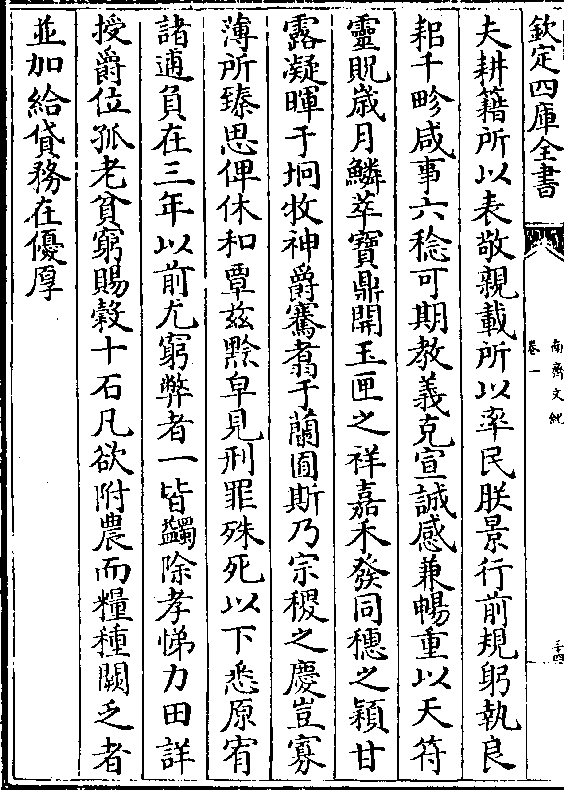 欽定四庫全書
南齊文紀
卷一
三十四
夫耕籍所以表敬親載所以率民朕景行前規躬執良
耜千畛咸事六稔可期教義克宣誠感兼暢重以天符
靈貺歲月鱗萃寶鼎開玉匣之祥嘉禾發同穗之穎甘
露凝暉于坰牧神爵騫翥于蘭囿斯乃宗稷之慶豈寡
薄所臻思俾休和覃茲黔皁見刑罪殊死以下悉原宥
諸逋負在三年以前尤窮弊者一皆蠲除孝悌力田詳
授爵位孤老貧窮賜穀十石凡欲附農而糧種闕乏者
並加給貸務在優厚